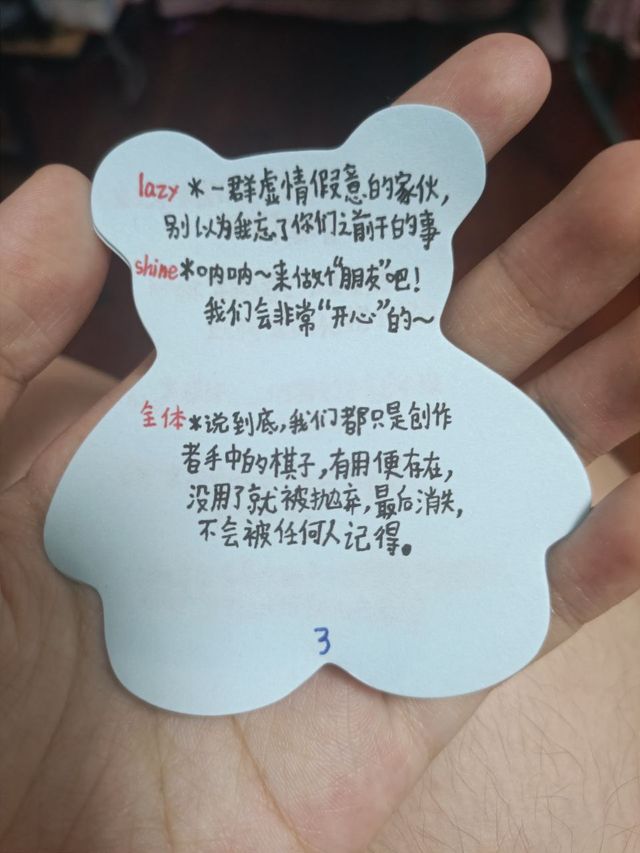 lazy *一群虚情假意的家伙,
别以为我忘了你们之前干的事
shine*呐呐~来做个"朋友"吧!
我们会非常"开心"的~
全体*说到底,我们都只是创作
者手中的棋子,有用便存在,
没用了就被抛弃,最后消失,
不会被任何人记得。
3